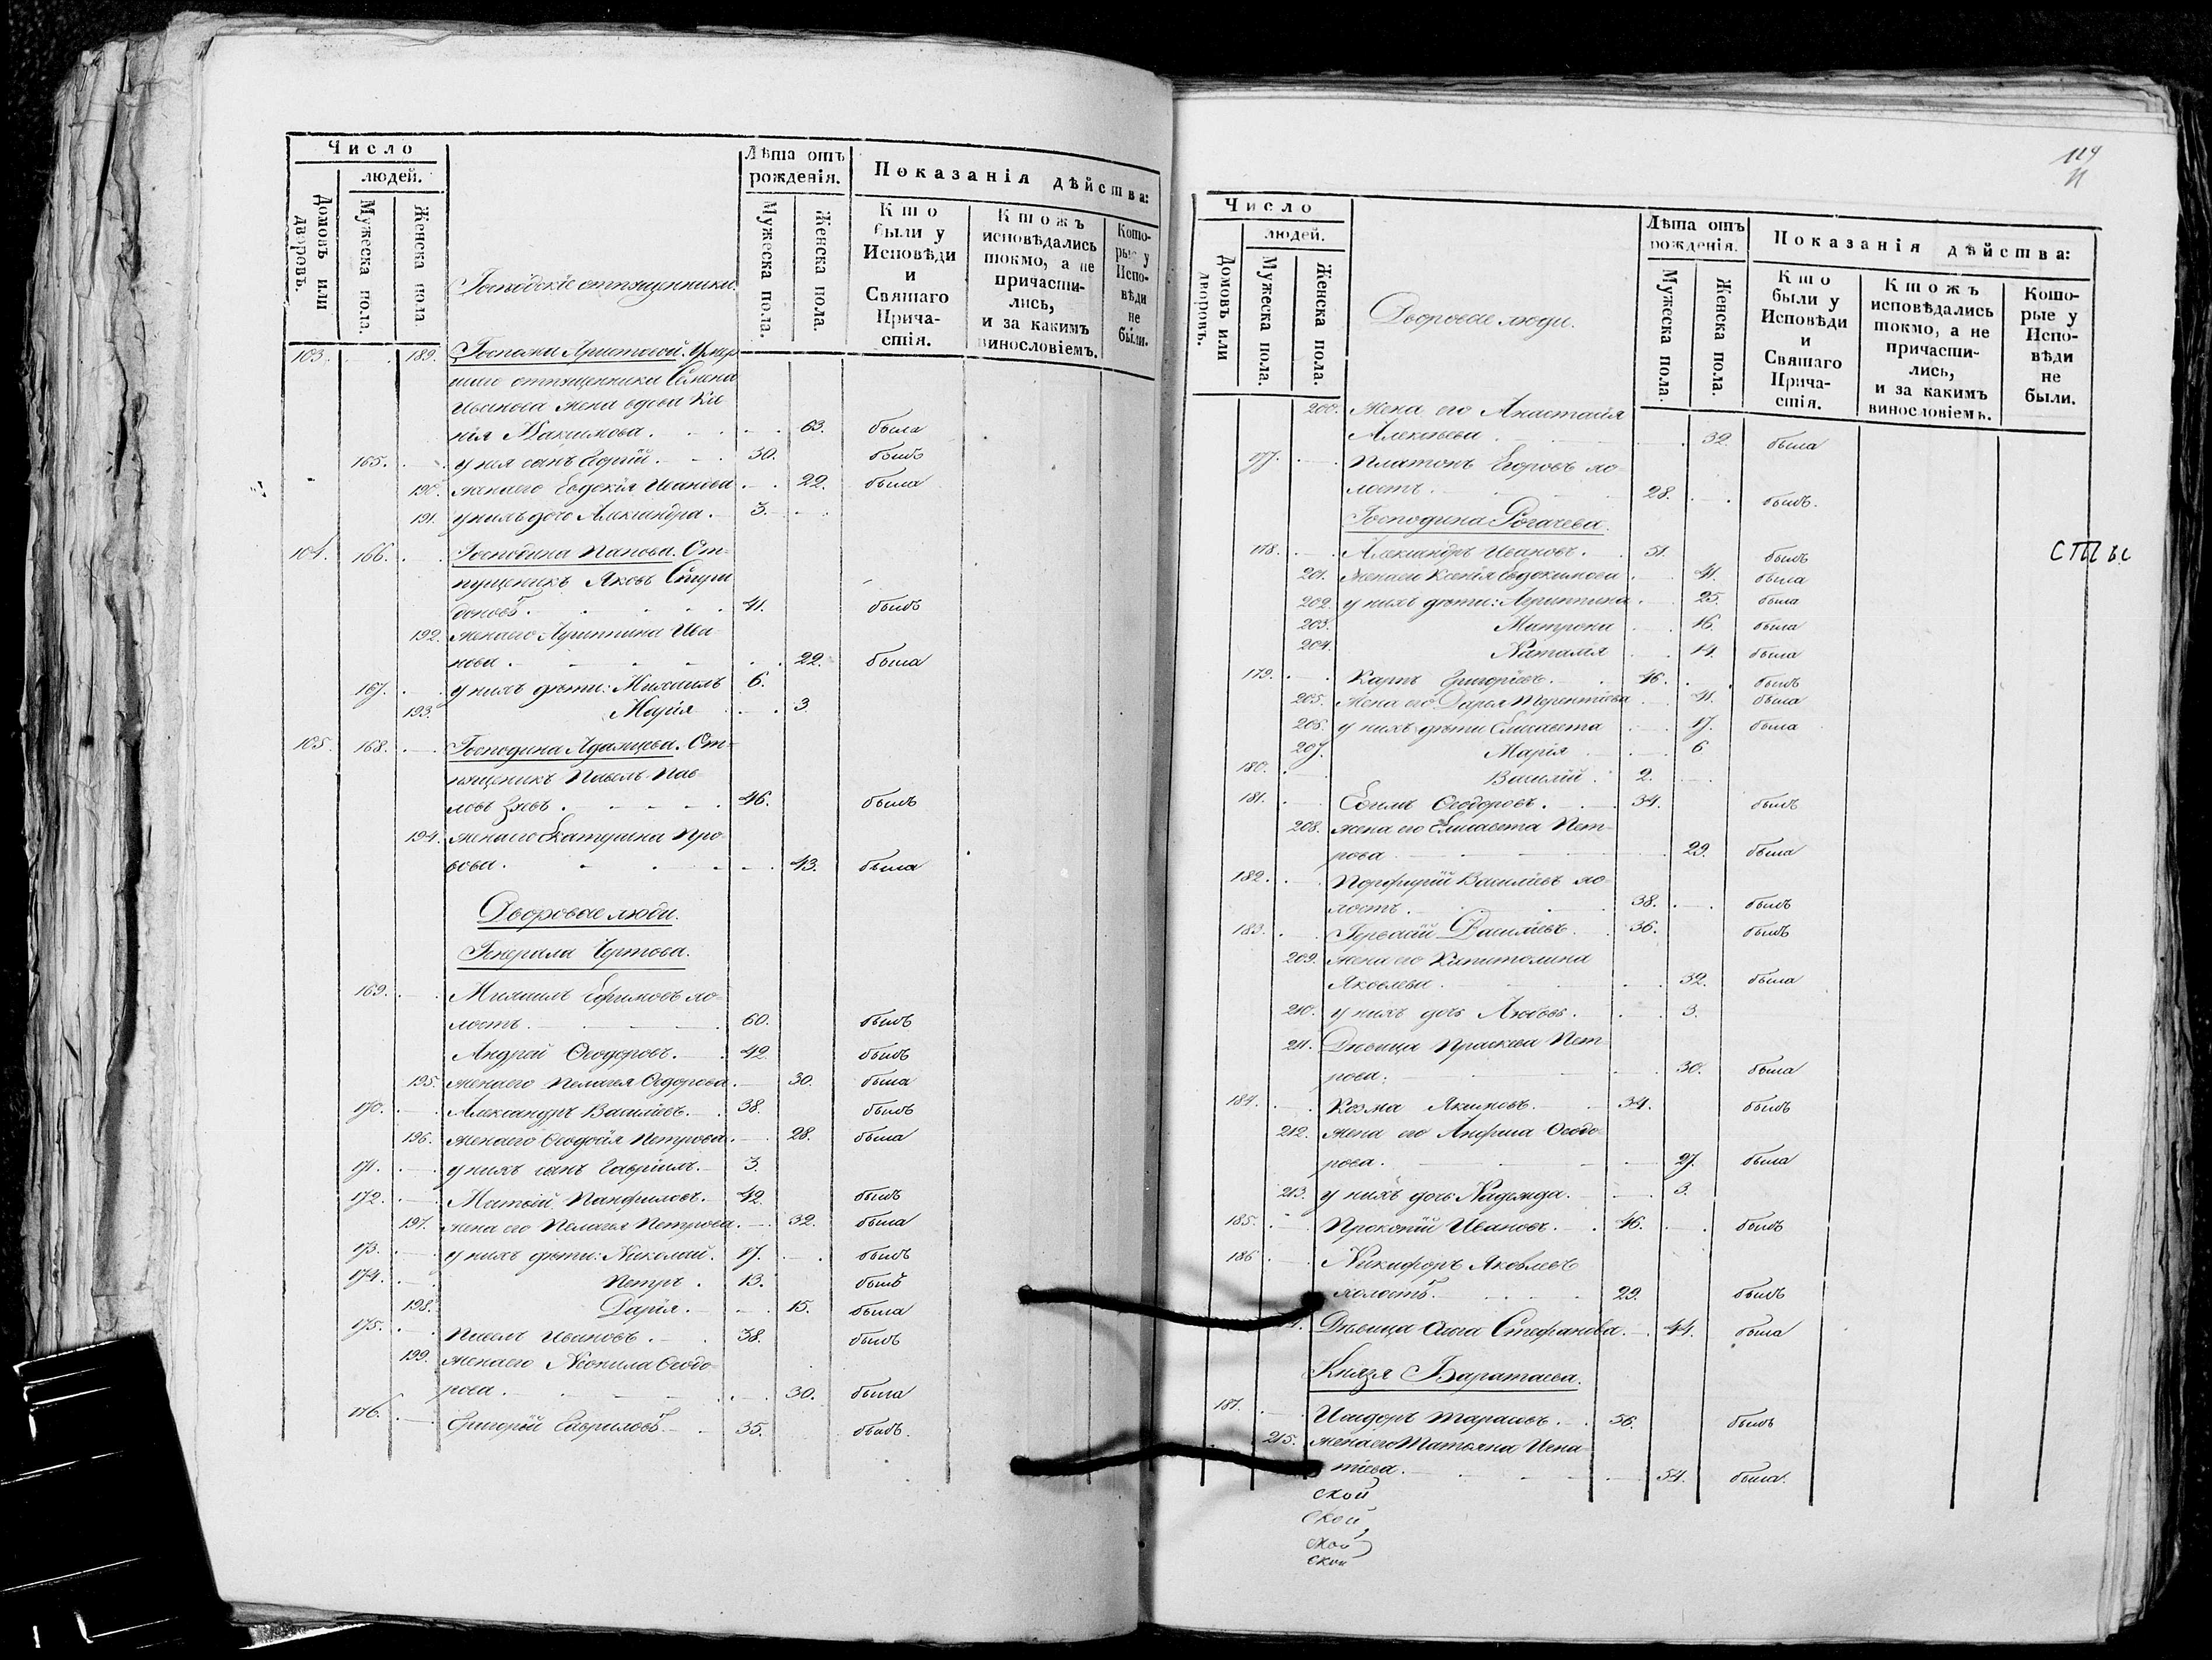 Число
людей.
Домовъ или дворовъ.
Мужеска пола.
Женска пола
Господскіе отпущенники.
Лѣта отъ рожденія.
Мужеска пола.
Женска пола.
Показанія дѣйства:
Кто были у Исповѣди и Святаго Прича-стія.
Ктожъ исповѣдались токмо, а не причасти-лись, и за какимъ винословіемъ.
Кото-рые у Испо-вѣди не были.
103. 189. Госпожи
отпущенника
Иванова жена вдова
Максимова. 63. была
165. у нея сынъ 30. былъ
190. жена его Евдокія Иванова 22. была
191. у нихъ дочь Александра. 3.
104. 166. Господина Панова. От-
пущеникъ Яковъ
41. былъ
192. жена его Агриппина Ива-
нова 22. была
167. у нихъ дѣти: Михаилъ 6.
193. Марія 3
105. 168. Господина От-
пущеникъ Павелъ Пав-
ловъ 46. былъ
194. жена его Екатерина
43. была
Дворовые люди.
Генерала Чертова.
169. Михаилъ Ефимовъ хо-
лостъ 60. былъ
Андрей Ѳеодоровъ. 42 былъ
195. жена его Пелагея Ѳедорова 30. была
170. Александръ Василіевъ. 38. былъ
196. жена его Ѳеодосія Петрова 28. была
171. у нихъ сынъ Гавріилъ. 3.
172. Матвей Панфиловъ. 42 былъ
197. жена его Пелагея Петрова 32. была
173. у нихъ дѣти: Николай. 17. былъ
174. Петръ. 13. былъ
198. Дарія. 15. была
175. Павелъ Ивановъ. 38. былъ
199. жена его Неонила Ѳеодо-
рова. 30. была
176. Григорій Гавриловъ. 35. былъ.
119
Число
людей.
Домовъ или дворовъ.
Мужеска пола.
Женска пола.
Дворовые люди.
Лѣта отъ рожденія.
Мужеска пола.
Женска пола.
Показанія дѣйства:
Кто были у Исповѣди и Святаго Прича-стія.
Ктожъ исповѣдались токмо, а не причасти-лись, и за какимъ винословіемъ.
Кото-рые у Испо-вѣди не были.
200. Жена его Анастасія
Алексѣева 32. была
177. Платонъ Егоровъ хо-
лостъ. 28. былъ.
Господина Рогачева.
178. Александръ Ивановъ. 51. былъ
201. жена его Ксенія Евдокимова 41. была
202. у нихъ дѣти: Агриппина 25. была
203. Матрона 16. была
204. Наталія 14. была
179. Карпъ Григорьевъ. 46. былъ
205. Жена его Дарья Терентіева 41. была
206. у нихъ дѣти Елисавета 17. была
207. Марія 6
180. Василій 2.
181. Ефимъ Ѳеодоровъ. 34. былъ
208. жена его Елисавета Пет-
рова 29. была
182. Порфирій Василіевъ хо-
лостъ. 38. былъ
183. Гервасій Василіевъ. 36. былъ
209. жена его Капитолина
Яковлева. 32. была
210. у нихъ дочь Любовь. 3.
211. Дѣвица Прасковья Пет-
рова. 30. была
184. Козма Якимовъ. 34. былъ
212. жена его Анфиса Ѳеодо-
рова. 27. была
213. у нихъ дочь Надежда. 3.
185. Прокопій Ивановъ. 46. былъ
186 Никифоръ Яковлевъ
холостъ. 29. былъ
Дѣвица Стефанова. 44. была
Князя Баратаева.
187. Исидоръ Тарасовъ. 56. былъ
215. жена его Татьяна Игна-
тіева. 54. была.
ской
ской
ской
ской